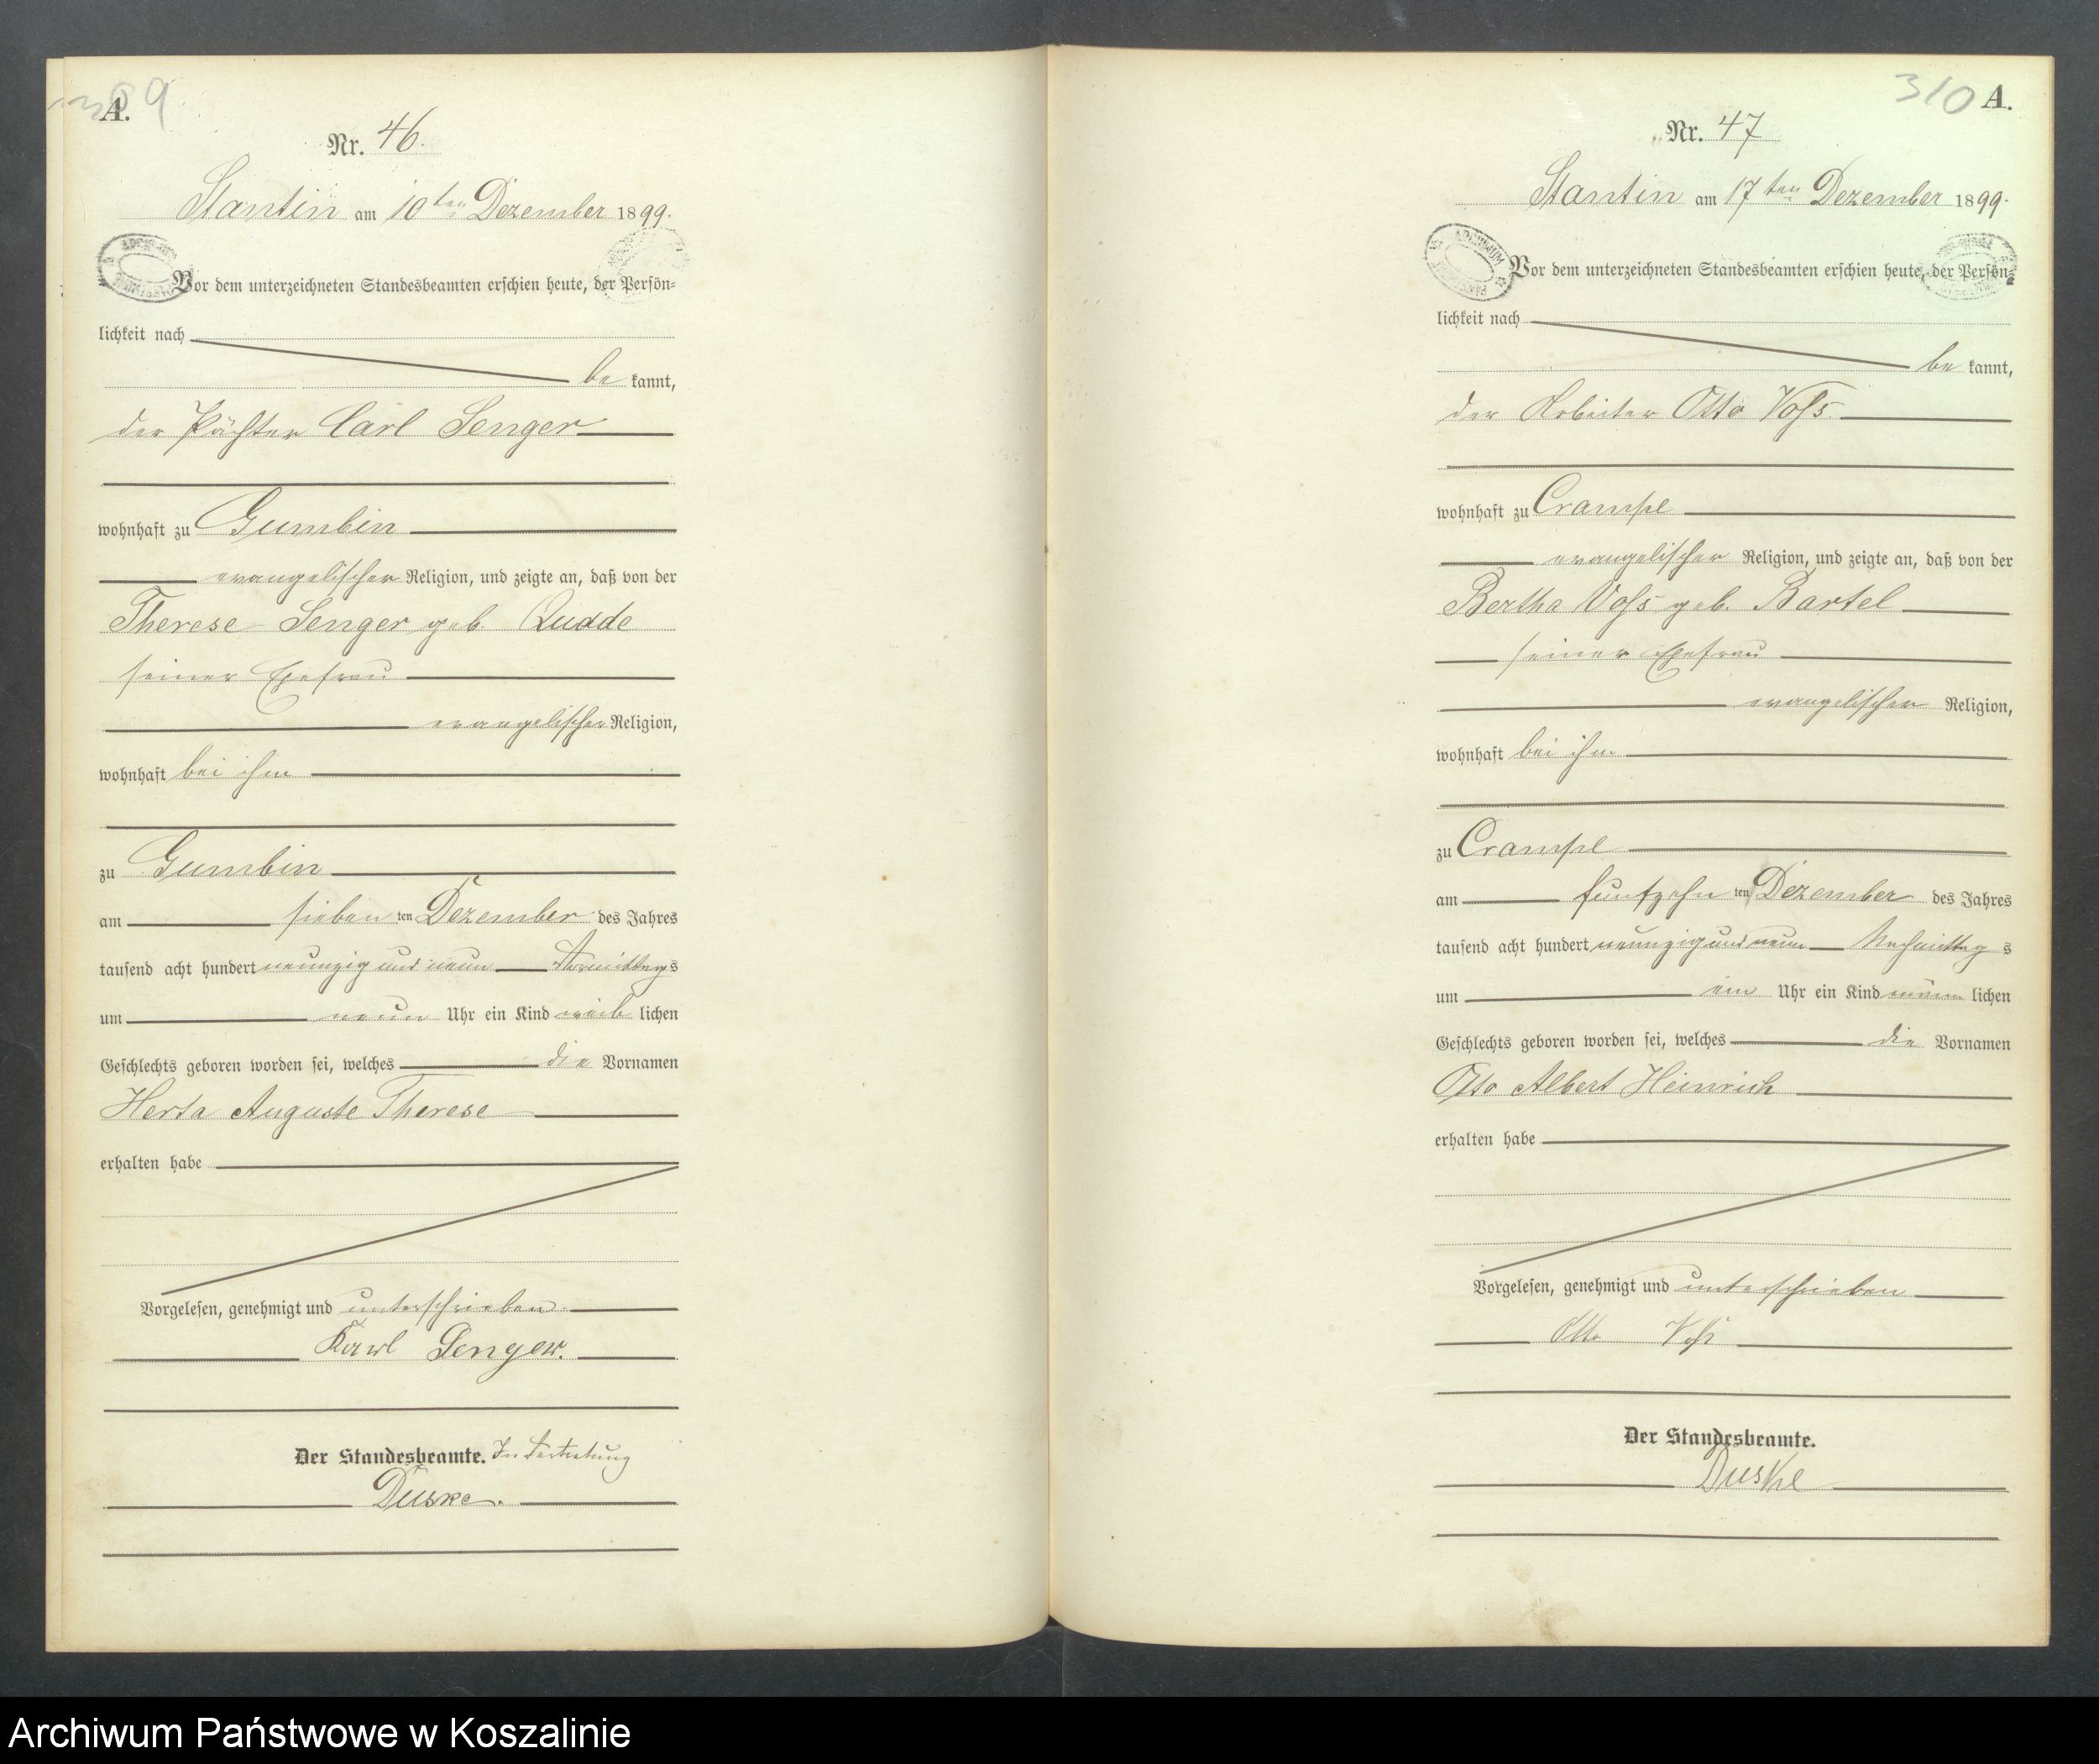 309
A.
Nr. 46.
Stantin am 10ten Dezember 1899.
Vor dem unterzeichneten Standesbeamten erschien heute, der Persön=
lichkeit nach
be kannt,
der Pächter Carl Senger
wohnhaft zu Gumbin
evangelischer Religion, und zeigte an, daß von der
Therese Senger geb. Qudde
seiner Ehefrau
evangelischer Religion,
wohnhaft bei ihm
zu Gumbin
am sieben ten Dezember des Jahres
tausend acht hundert neunzig und neun Vormittags
um neun Uhr ein Kind weib lichen
Geschlechts geboren worden sei, welches die Vornamen
Herta Auguste Therese
erhalten habe
Vorgelesen, genehmigt und unterschrieben.
Karl Senger.
Der Standesbeamte. In Vertretung
Duske.
310 A.
Nr. 47
Stantin am 17ten Dezember 1899.
Vor dem unterzeichneten Standesbeamten erschien heute, der Persön=
lichkeit nach
be kannt,
der Arbeiter Otto Voß
wohnhaft zu Crampe
evangelischer Religion, und zeigte an, daß von der
Bertha Voß geb. Bartel
seiner Ehefrau
evangelischer Religion,
wohnhaft bei ihm
zu Crampe
am funfzehn ten Dezember des Jahres
tausend acht hundert neunzig und neun Nachmittag s
um ein Uhr ein Kind männ lichen
Geschlechts geboren worden sei, welches die Vornamen
Otto Albert Heinrich
erhalten habe
Vorgelesen, genehmigt und unterschrieben
Otto Voß
Der Standesbeamte.
Duske
Archiwum Państwowe w Koszalinie